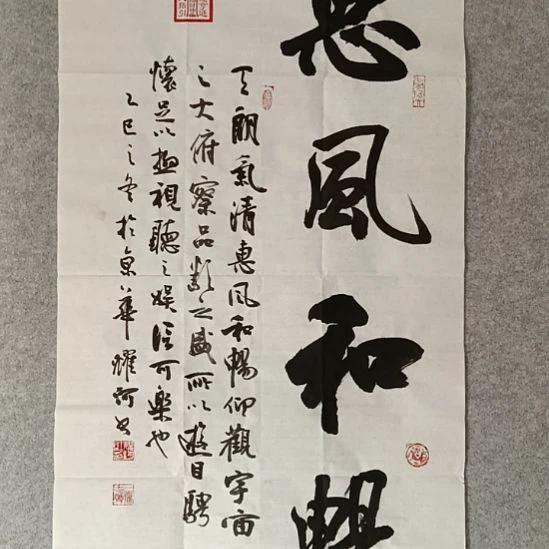 惠風和暢
天朗氣清惠风和暢仰觀宇宙
之大俯察品類之盛所以遊目騁
懷足以極視聽之娛信可樂也
乙巳之冬於京華耀